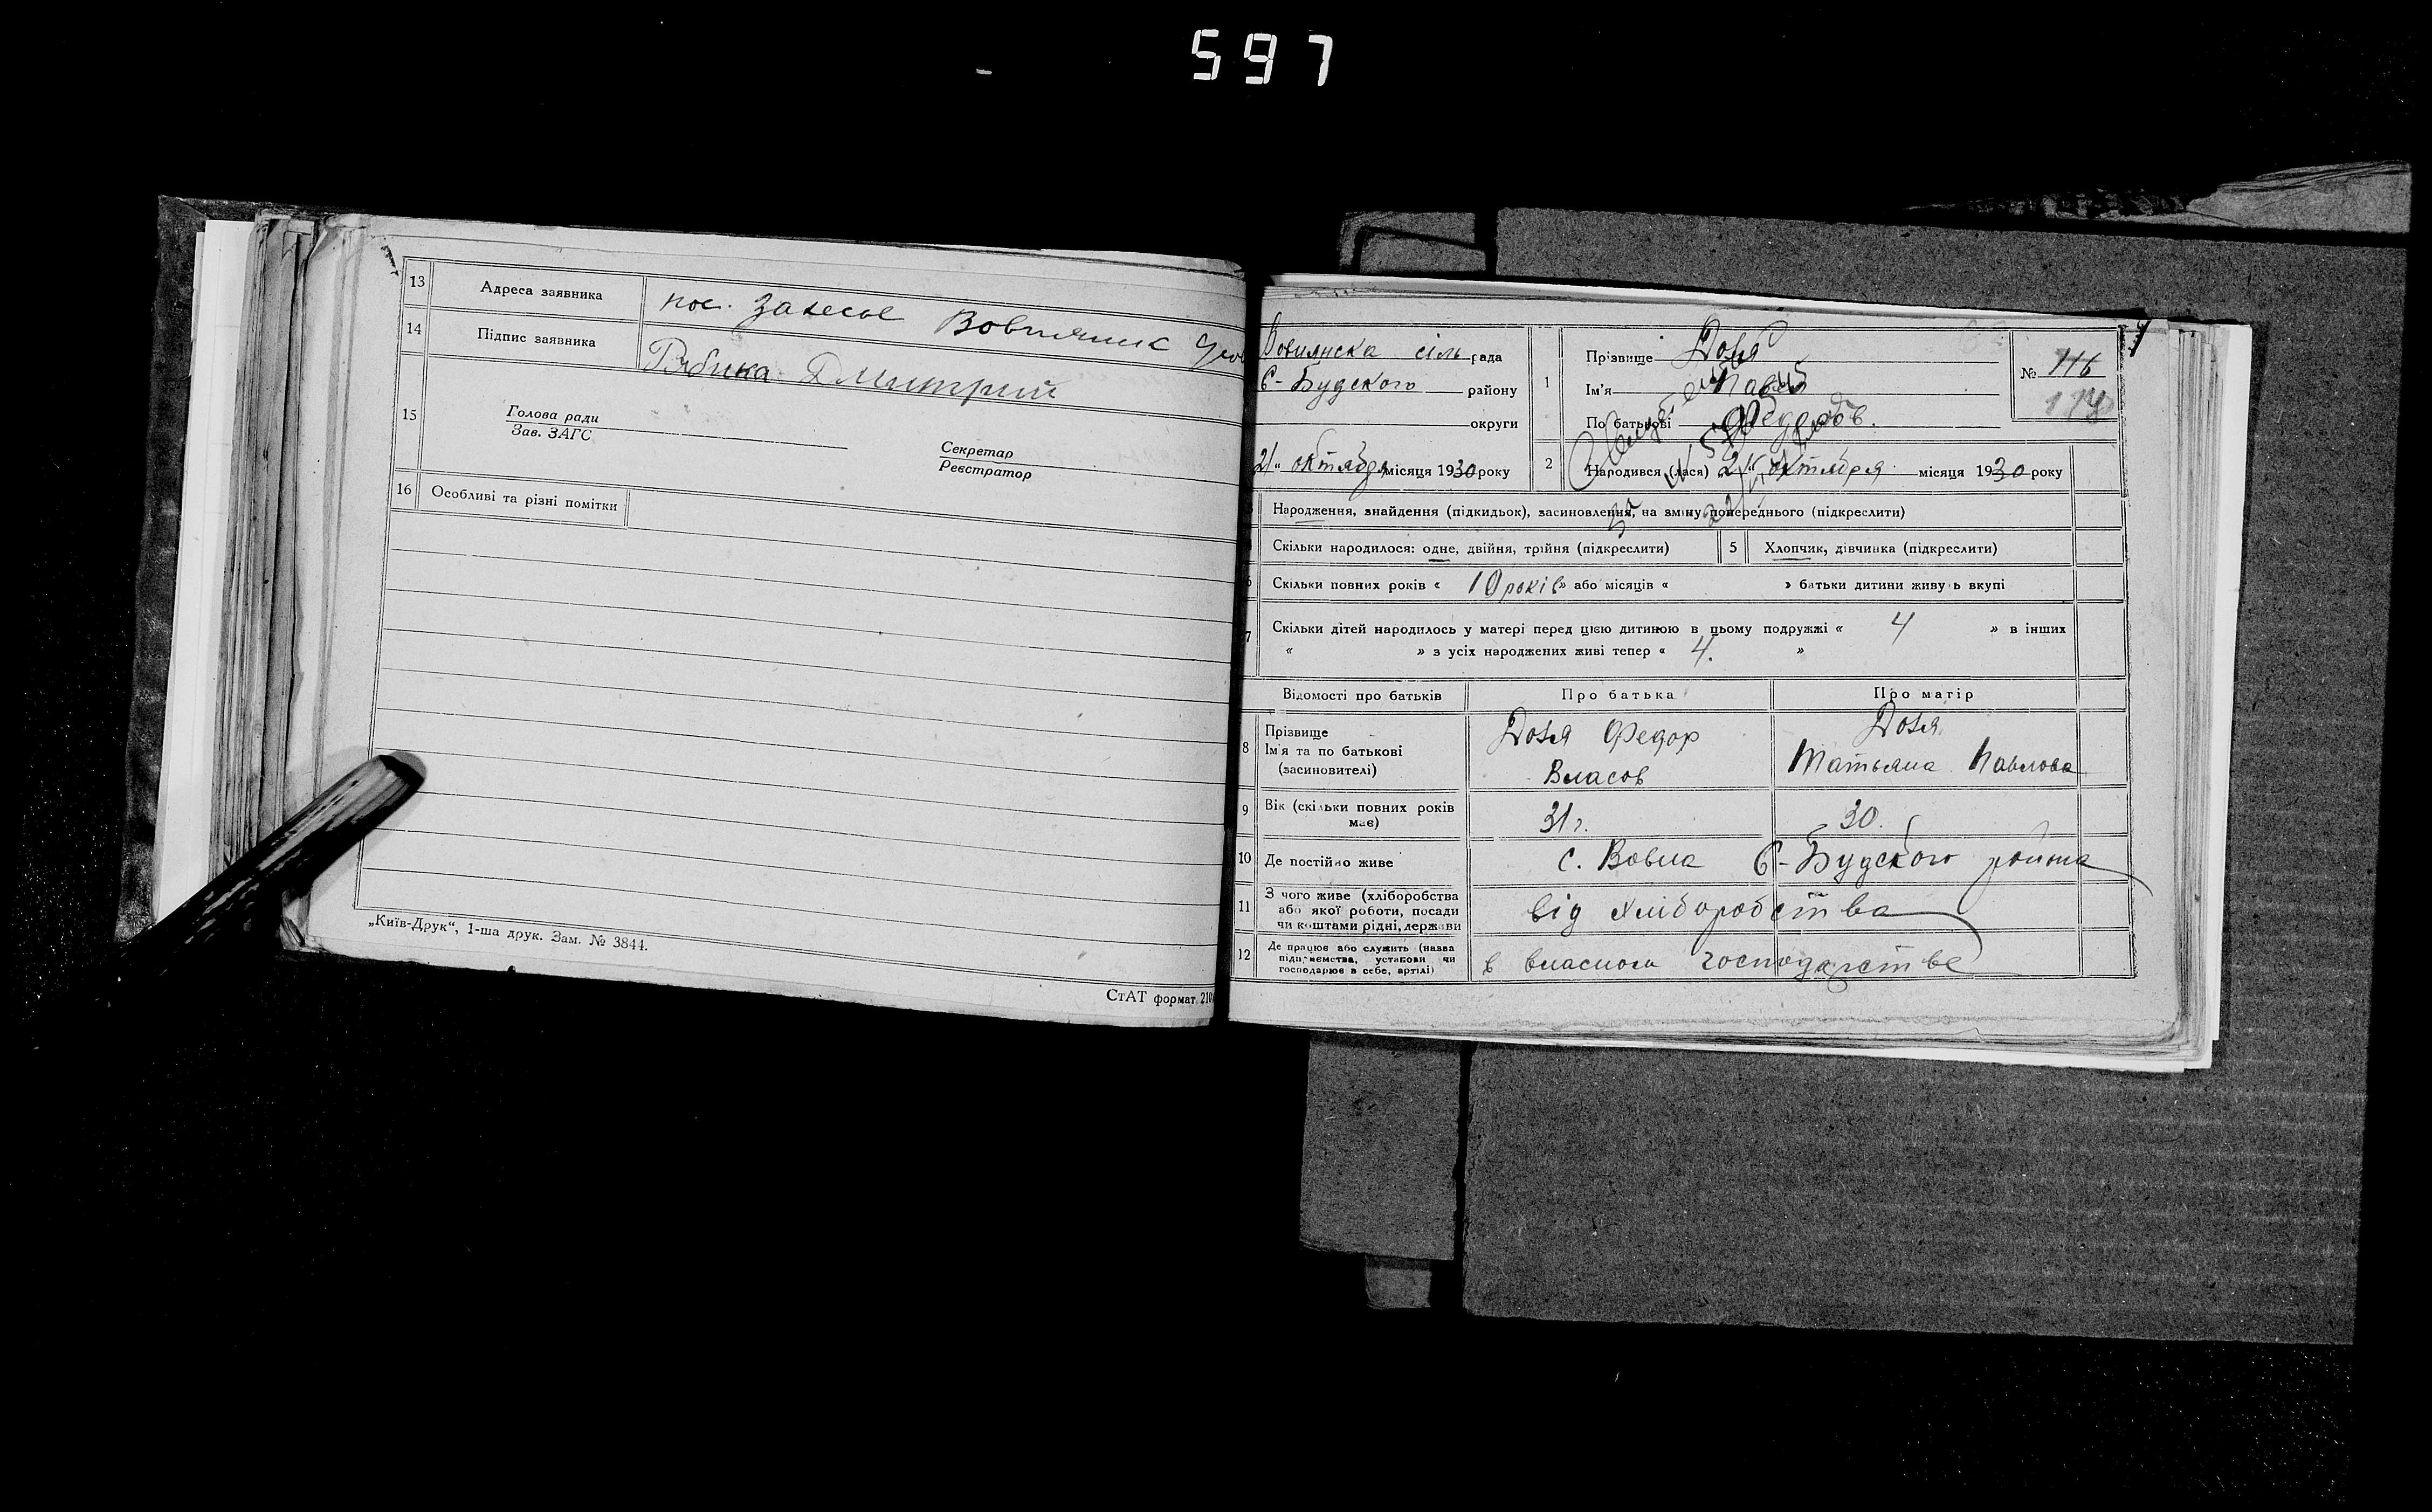 597
13 Адреса заявника пос. Залесье
14 Підпис заявника Рябика Дмитрий
15 Голова ради
Зав. ЗАГС
Секретар
Реєстратор
16 Особливі та різні помітки
„Київ-Друк“, 1-ша друк. Зам. № 3844.
СтАТ формат 210
Вовнянска сіль рада
Є-Будского району
округи
21 " октября місяця 1930 року
1 Прізвище Доля
Ім'я Павел
По батькові Федоров.
№ 116
2 Народився (лася) 21 октября місяця 1930 року
Народження, знайдення (підкидьок), засиновлення, на зміну попереднього (підкреслити)
Скільки народилося: одне, двійня, трійня (підкреслити) 5 Хлопчик, дівчинка (підкреслити)
6 Скільки повних років « 10 років » або місяців « » батьки дитини живуть вкупі
7 Скільки дітей народилось у матері перед цією дитиною в цьому подружжі « 4 » в інших
« » з усіх народжених живі тепер « 4. »
Відомості про батьків Про батька Про матір
8 Прізвище
Ім'я та по батькові
(засиновителі)
Доля Федор
Власов
Доля
Татьяна Павлова
9 Вік (скільки повних років
має) 31 г. 30.
10 Де постійно живе с. Вовна Є-Будского району
11 З чого живе (хліборобства
або якої роботи, посади
чи коштами рідні, держави
від хліборобства
12 Де працює або служить (назва
підприємства, установи чи
господарює в себе, артілі)
в власном господарстве